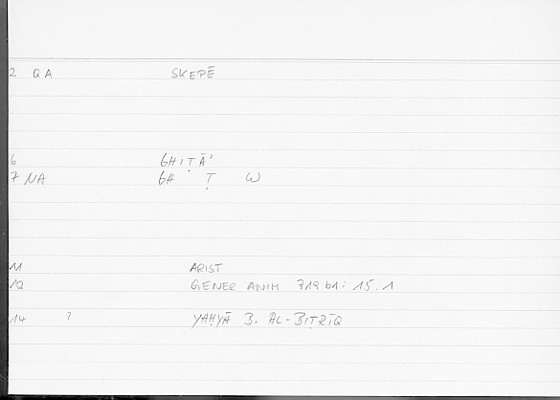 2 QA SKEPĒ
6 GHIṬĀʾ
7 NA GA Ṭ W
11 ARIST
12 GENER ANIM 719 b1 : 15.1
14 ? YAḤYĀ B. AL-BIṬRĪQ